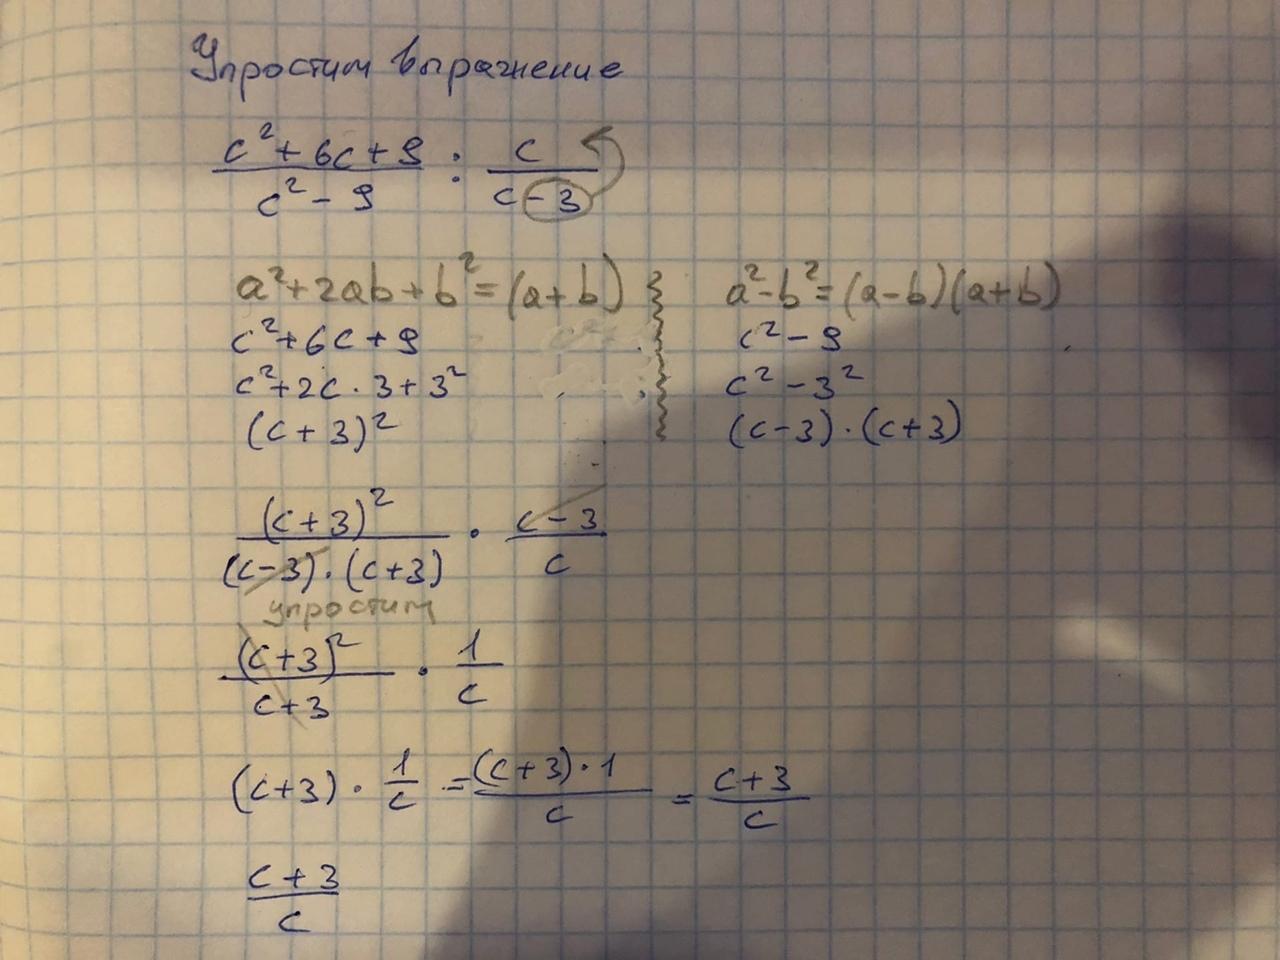 Упростим выражение
c²+6c+9 / c²-9 : c / c-3
a²+2ab+b²=(a+b) a²-b²=(a-b)(a+b)
c²+6c+9 c²-9
c²+2c·3+3² c²-3²
(c+3)² (c-3)·(c+3)
(c+3)² / (c-3)·(c+3) · c-3 / c
упростим
(c+3)² / c+3 · 1 / c
(c+3)· 1 / c = (c+3)·1 / c = c+3 / c
c+3 / c